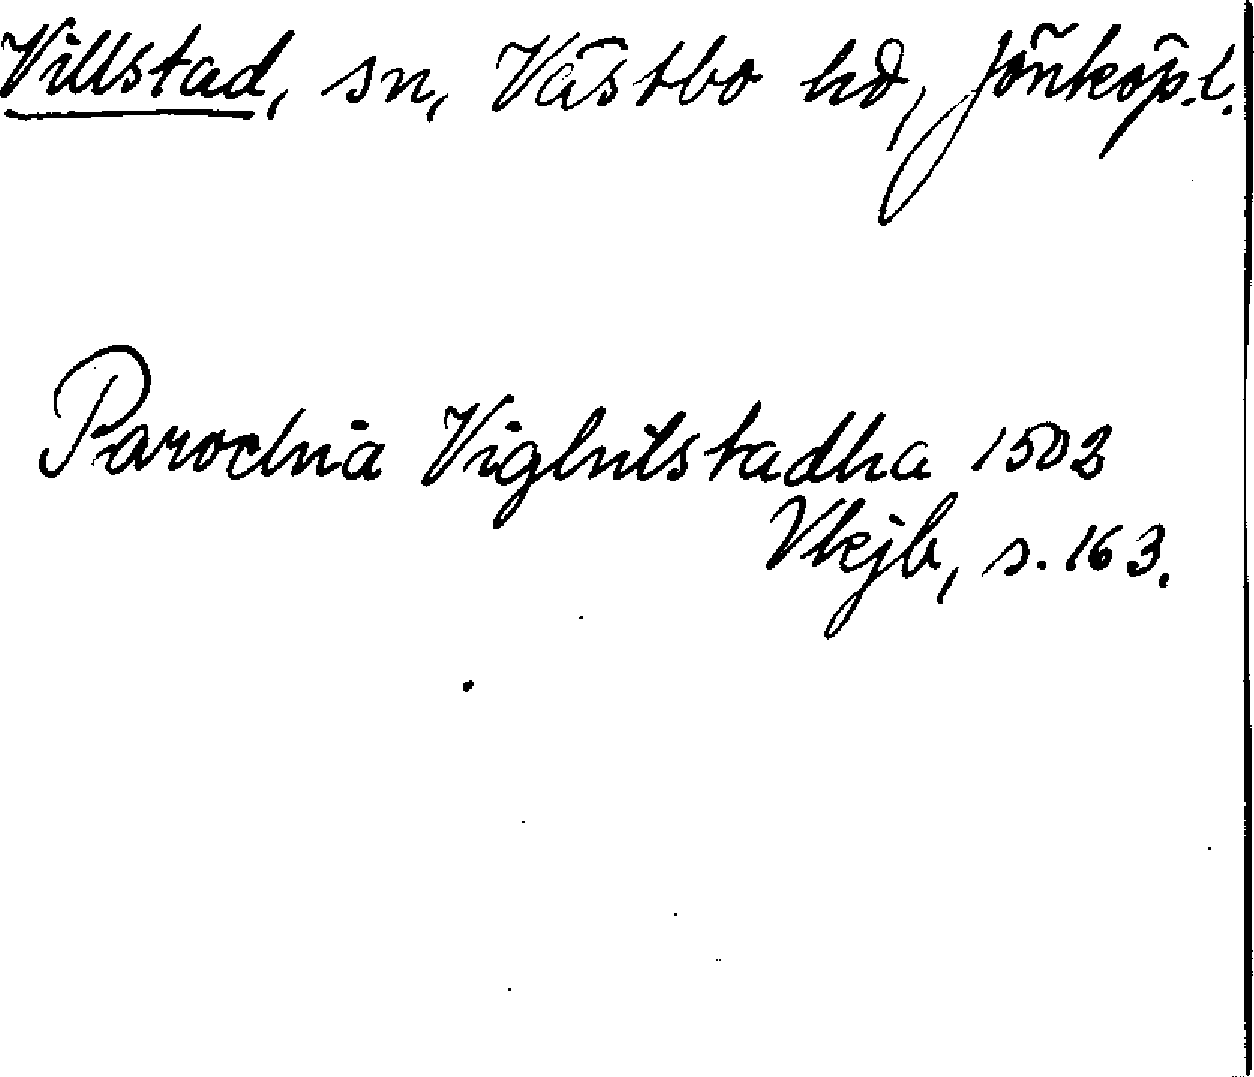 Villstad, sn, Västbo hd, Jönköp.l.
Parochia Vighnilstadha 1502
Vkjb, s. 163.